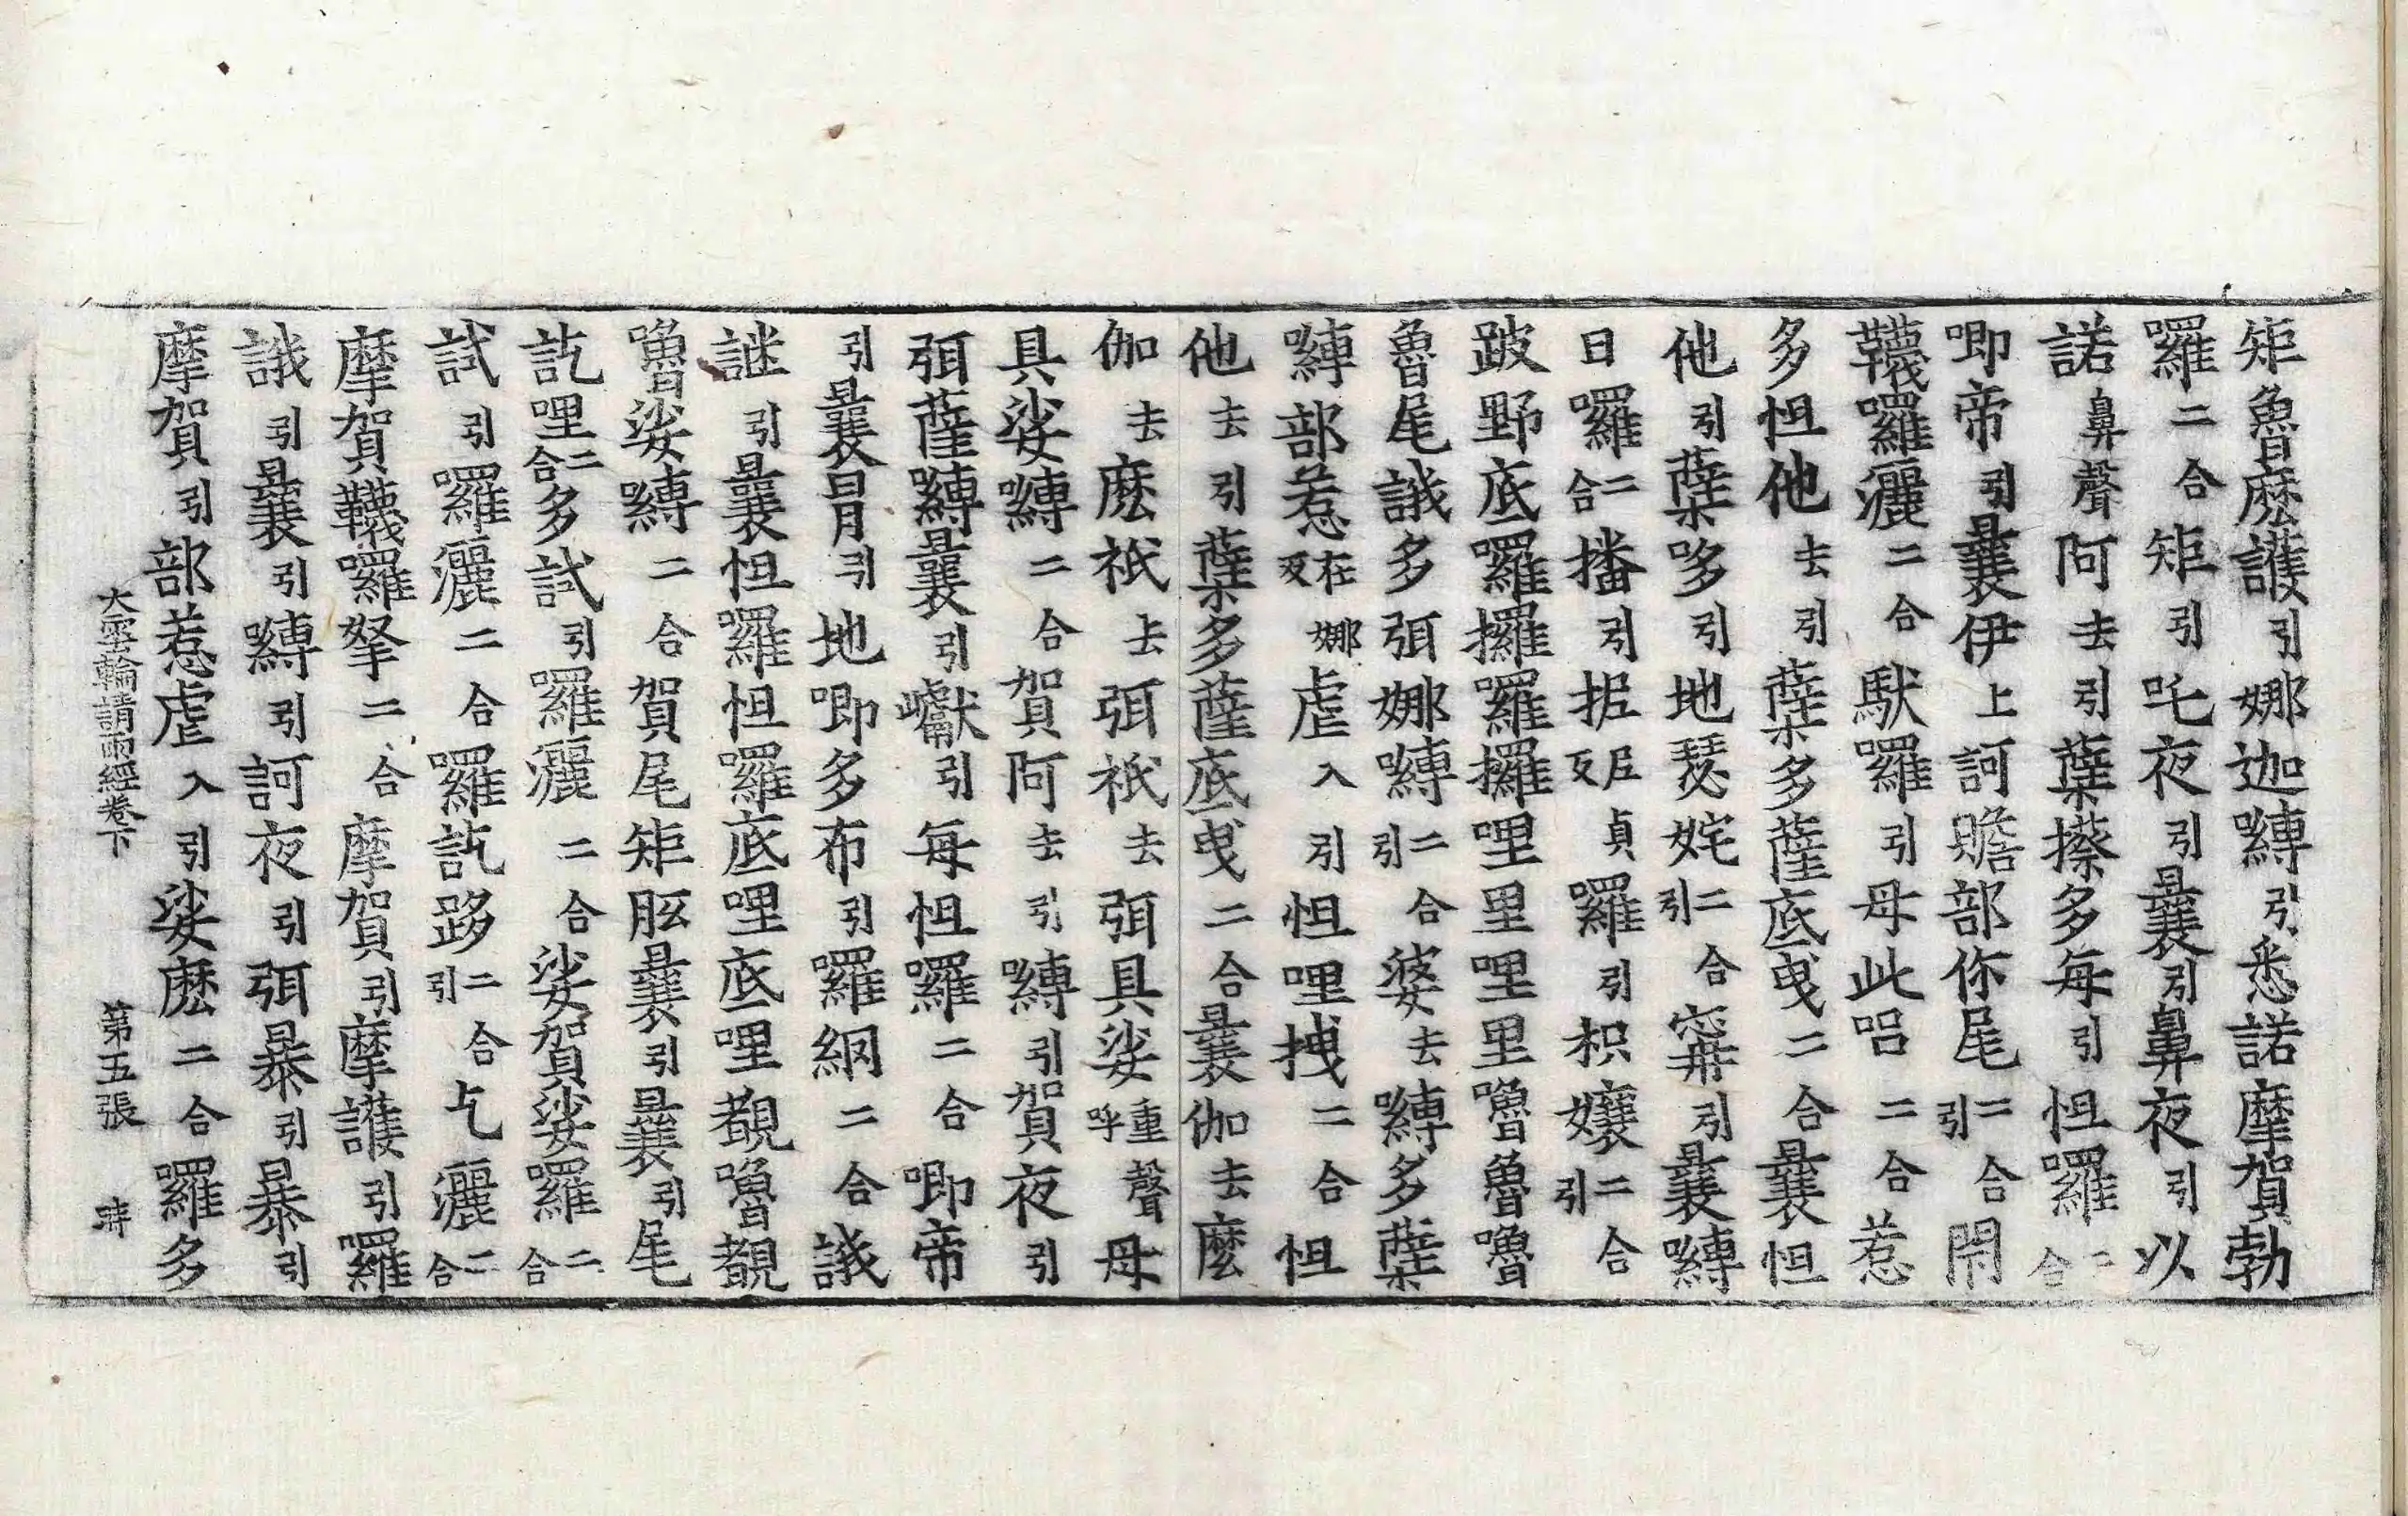 矩魯麽護引娜迦嚩引悉諾摩賀勃
羅二合矩引吒夜引曩引鼻夜引以
諾鼻聲阿去引葉攃多每引怛羅二合
唧帝引曩伊上訶贍部你尾二合引閇
韈囉灑二合馱羅引母此呂二合惹
多怛他去引蘖多薩底曳二合曩怛
他引蘖哆引地瑟姹二合引寗引曩嚩
日囉二合播引抳尼貞反羅引枳孃二合引
跛野底囉攞羅攞哩里哩里嚕魯嚕
魯尾誐多弭娜嚩二合引婆去嚩多蘖
嚩部惹在娜反虐入引怛哩拽二合怛
他去引蘖多薩底曳二合曩伽去麽
伽去麽祇上弭祇去弭具娑重呼聲母
具娑嚩二合賀阿去引嚩引賀夜引
弭薩嚩曩引巘引每怛羅二合唧帝
引曩冐引地唧多布引羅網二合誐
謎引曩怛羅怛羅底哩底哩覩嚕覩
嚕娑嚩二合賀尾矩胘曩引曩引尾
訖哩二合多試引羅灑二合娑賀娑羅二合
試引羅灑二合羅訖跢二合引乞灑二合
摩賀韈羅拏二合摩賀引摩護引羅
誐引曩引嚩引訶夜引弭暴引暴引
摩賀引部惹虐入引娑麽二合羅多
大雲輪請雨經卷下　第五張